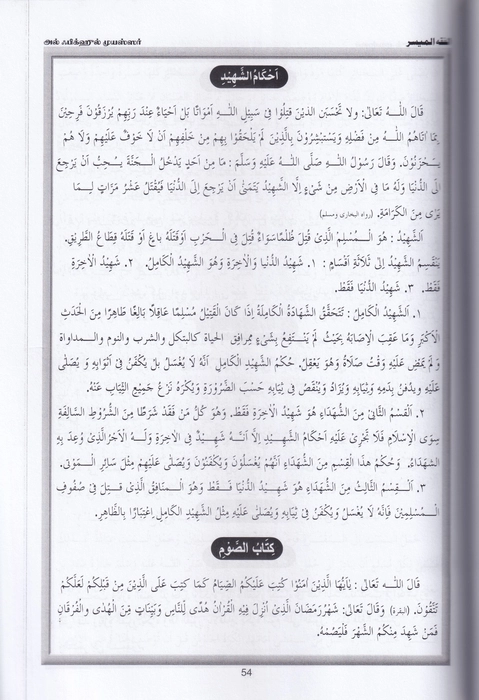 الفقه الميسر
அல் ஃபிக்ஹுல் முயஸ்ஸர்
أَحْكَامُ الشَّهِيْدِ
قَالَ اللّٰهُ تَعَالىٰ: ولا تَحْسَبَن الَّذِيْنَ قُتِلُوْا فِىْ سَبِيْلِ اللّٰهِ اَمْوَاتًا بَلْ اَحْيَاءٌ عِنْدَ رَبِهِمْ يُرْزَقُوْنَ فَرِحِيْنَ
بِمَا اٰتَاهُمُ اللّٰهُ مِنْ فَضْلِهٖ وَيَسْتَبْشِرُوْنَ بِالَّذِيْنَ لَمْ يَلْحَقُوْا بِهِمْ مِنْ خَلْفِهِمْ اَنْ لَا خَوْفٌ عَلَيْهِمْ وَلَا هُمْ
يَحْزَنُوْنَ. وَقَالَ رَسُوْلُ اللّٰهِ صَلَّى اللّٰهُ عَلَيْهِ وَسَلَّمَ : مَا مِنْ اَحَدٍ يَدْخُلُ الْجَنَّةَ يُحِبُّ اَنْ يَرْجِعَ
اِلَى الدُّنْيَا وَلَهُ مَا فِى الْاَرْضِ مِنْ شَىْءٍ اِلَّا الشَّهِيْدُ يَتَمَنّٰى اَنْ يَرْجِعَ اِلَى الدُّنْيَا فَيُقْتَلُ عَشْرُ مَرَّاتٍ لِمَا
يَرٰى مِنَ الْكَرَامَةِ. (رواه البخارى ومسلم)
اَلشَّهِيْدُ : هُوَ الْمُسْلِمُ الَّذِىْ قُتِلَ ظُلْمًا سَوَاءٌ قُتِلَ فِى الْحَرْبِ اَوْقَتَلَهُ بَاغٍ اَوْ قَتَلَهُ قِطَاعُ الطَّرِيْقِ.
يَنْقَسِمُ الشَّهِيْدُ اِلىٰ ثَلَاثَةِ اَقْسَامٍ : ١. شَهِيْدُ الدُّنْيا وَالْاٰخِرَةِ وَهُوَ الشَّهِيْدُ الْكَامِلُ. ٢. شَهِيْدُ الْاٰخِرَةِ
فَقَطْ. ٣. شَهِيْدُ الدُّنْيَا فَقَطْ.
١. اَلشَّهِيْدُ الْكَامِلُ : تَتَحَقَّقُ الشَّهَادَةُ الْكَامِلَةُ اِذَا كَانَ الْقَتِيْلُ مُسْلِمًا عَاقِلًا بَالِغًا طَاهِرًا مِنَ الْحَدَثِ
الْاَكْبَرِ وَمَا عَقِبَ الْاِصَابَةِ بِحَيْثُ لَمْ يَنْتَفِعْ بِشَىْءٍ مِمرافِقِ الحياة كالبتكل والشرب والنوم والـمداواة
وَلَمْ يَمْضِ عَلَيْهِ وَقْتُ صَلَاةٍ وَهُوَ يَعْقِلُ. حُكْمُ الشَّهِيْدِ الْكَامِلِ اَنَّهُ لَا يُغْسَلُ بَلْ يُكَفَّنُ فِىْ اَثْوَابِهٖ وَ يُصَلّٰى
عَلَيْهِ ويدفنُ بدَمِهِ وثِيابِهِ ويُزَادُ وَيُنْقَصُ فِىْ ثِيَابِهِ حَسَبَ الضَّرُوْرَةِ وَيُكْرَهُ نَزْعُ جَمِيْعِ الثِّيَابِ عَنْهُ.
٢. اَلْقِسْمُ الثَّانِىْ مِنَ الشُّهَدَاءِ هُوَ شَهِيْدُ الْاٰخِرَةِ فَقَطْ. وَهُوَ كُلُّ مَنْ فَقَدَ شَرْطًا مِنَ الشُّرُوْطِ السَّالِفَةِ
سِوَى الْاِسْلَامِ فَلَا تَجْرِىْ عَلَيْهِ اَحْكَامُ الشَّهِيْدِ اِلَّا اَنَّهُ شَهِيْدٌ فِى الاٰخِرَةِ وَلَهُ الْاَجْرُ الَّذِىْ وُعِدَ بِهِ
الشهَدَاءُ. وَحُكْمُ هٰذَا الْقِسْمِ مِنَ الشُّهَدَاءِ اَنَّهُمْ يُغْسَلُوْنَ وَيُكَفَّنُوْنَ وَيُصَلّٰى عَلَيْهِمْ مِثْلَ سَائِرِ الْمَوْتٰى.
٣. اَلْقِسْمُ الثَّالِثُ مِنَ الشُّهَدَاءِ هُوَ شَهِيْدُ الدُّنْيَا فَقَطْ وَهُوَ الْمُنَافِقُ الَّذِىْ قُتِلَ فِىْ صُفُوْفِ
الْمُسْلِمِيْنَ فَاِنَّهُ لَا يُغْسَلُ وَيُكَفَّنُ فِىْ ثِيَابِهِ وَيُصَلّٰى عَلَيْهِ مِثْلُ الشَّهِيْدِ الْكَامِلِ اِعْتِبَارًا بِالظَّاهِرِ.
كِتَابُ الصَّوْمِ
قَالَ اللّٰهُ تَعَالىٰ : يٰاَيُّهَا الَّذِيْنَ اٰمَنُوْا كُتِبَ عَلَيْكُمُ الصِّيَامُ كَمَا كُتِبَ عَلَى الَّذِيْنَ مِنْ قَبْلِكُمْ لَعَلَّكُمْ
تَتَّقُوْنَ. (البقرة) وَقَالَ تَعَالىٰ: شَهْرُ رَمَضَانَ الَّذِىْ اُنْزِلَ فِيْهِ الْقُرْاٰنُ هُدًى لِلنَّاسِ وَبَيِّنَاتٍ مِّنَ الْهُدٰى وَالْفُرْقَانِ
فَمَنْ شَهِدَ مِنْكُمُ الشَّهْرَ فَلْيَصُمْهُ.
54